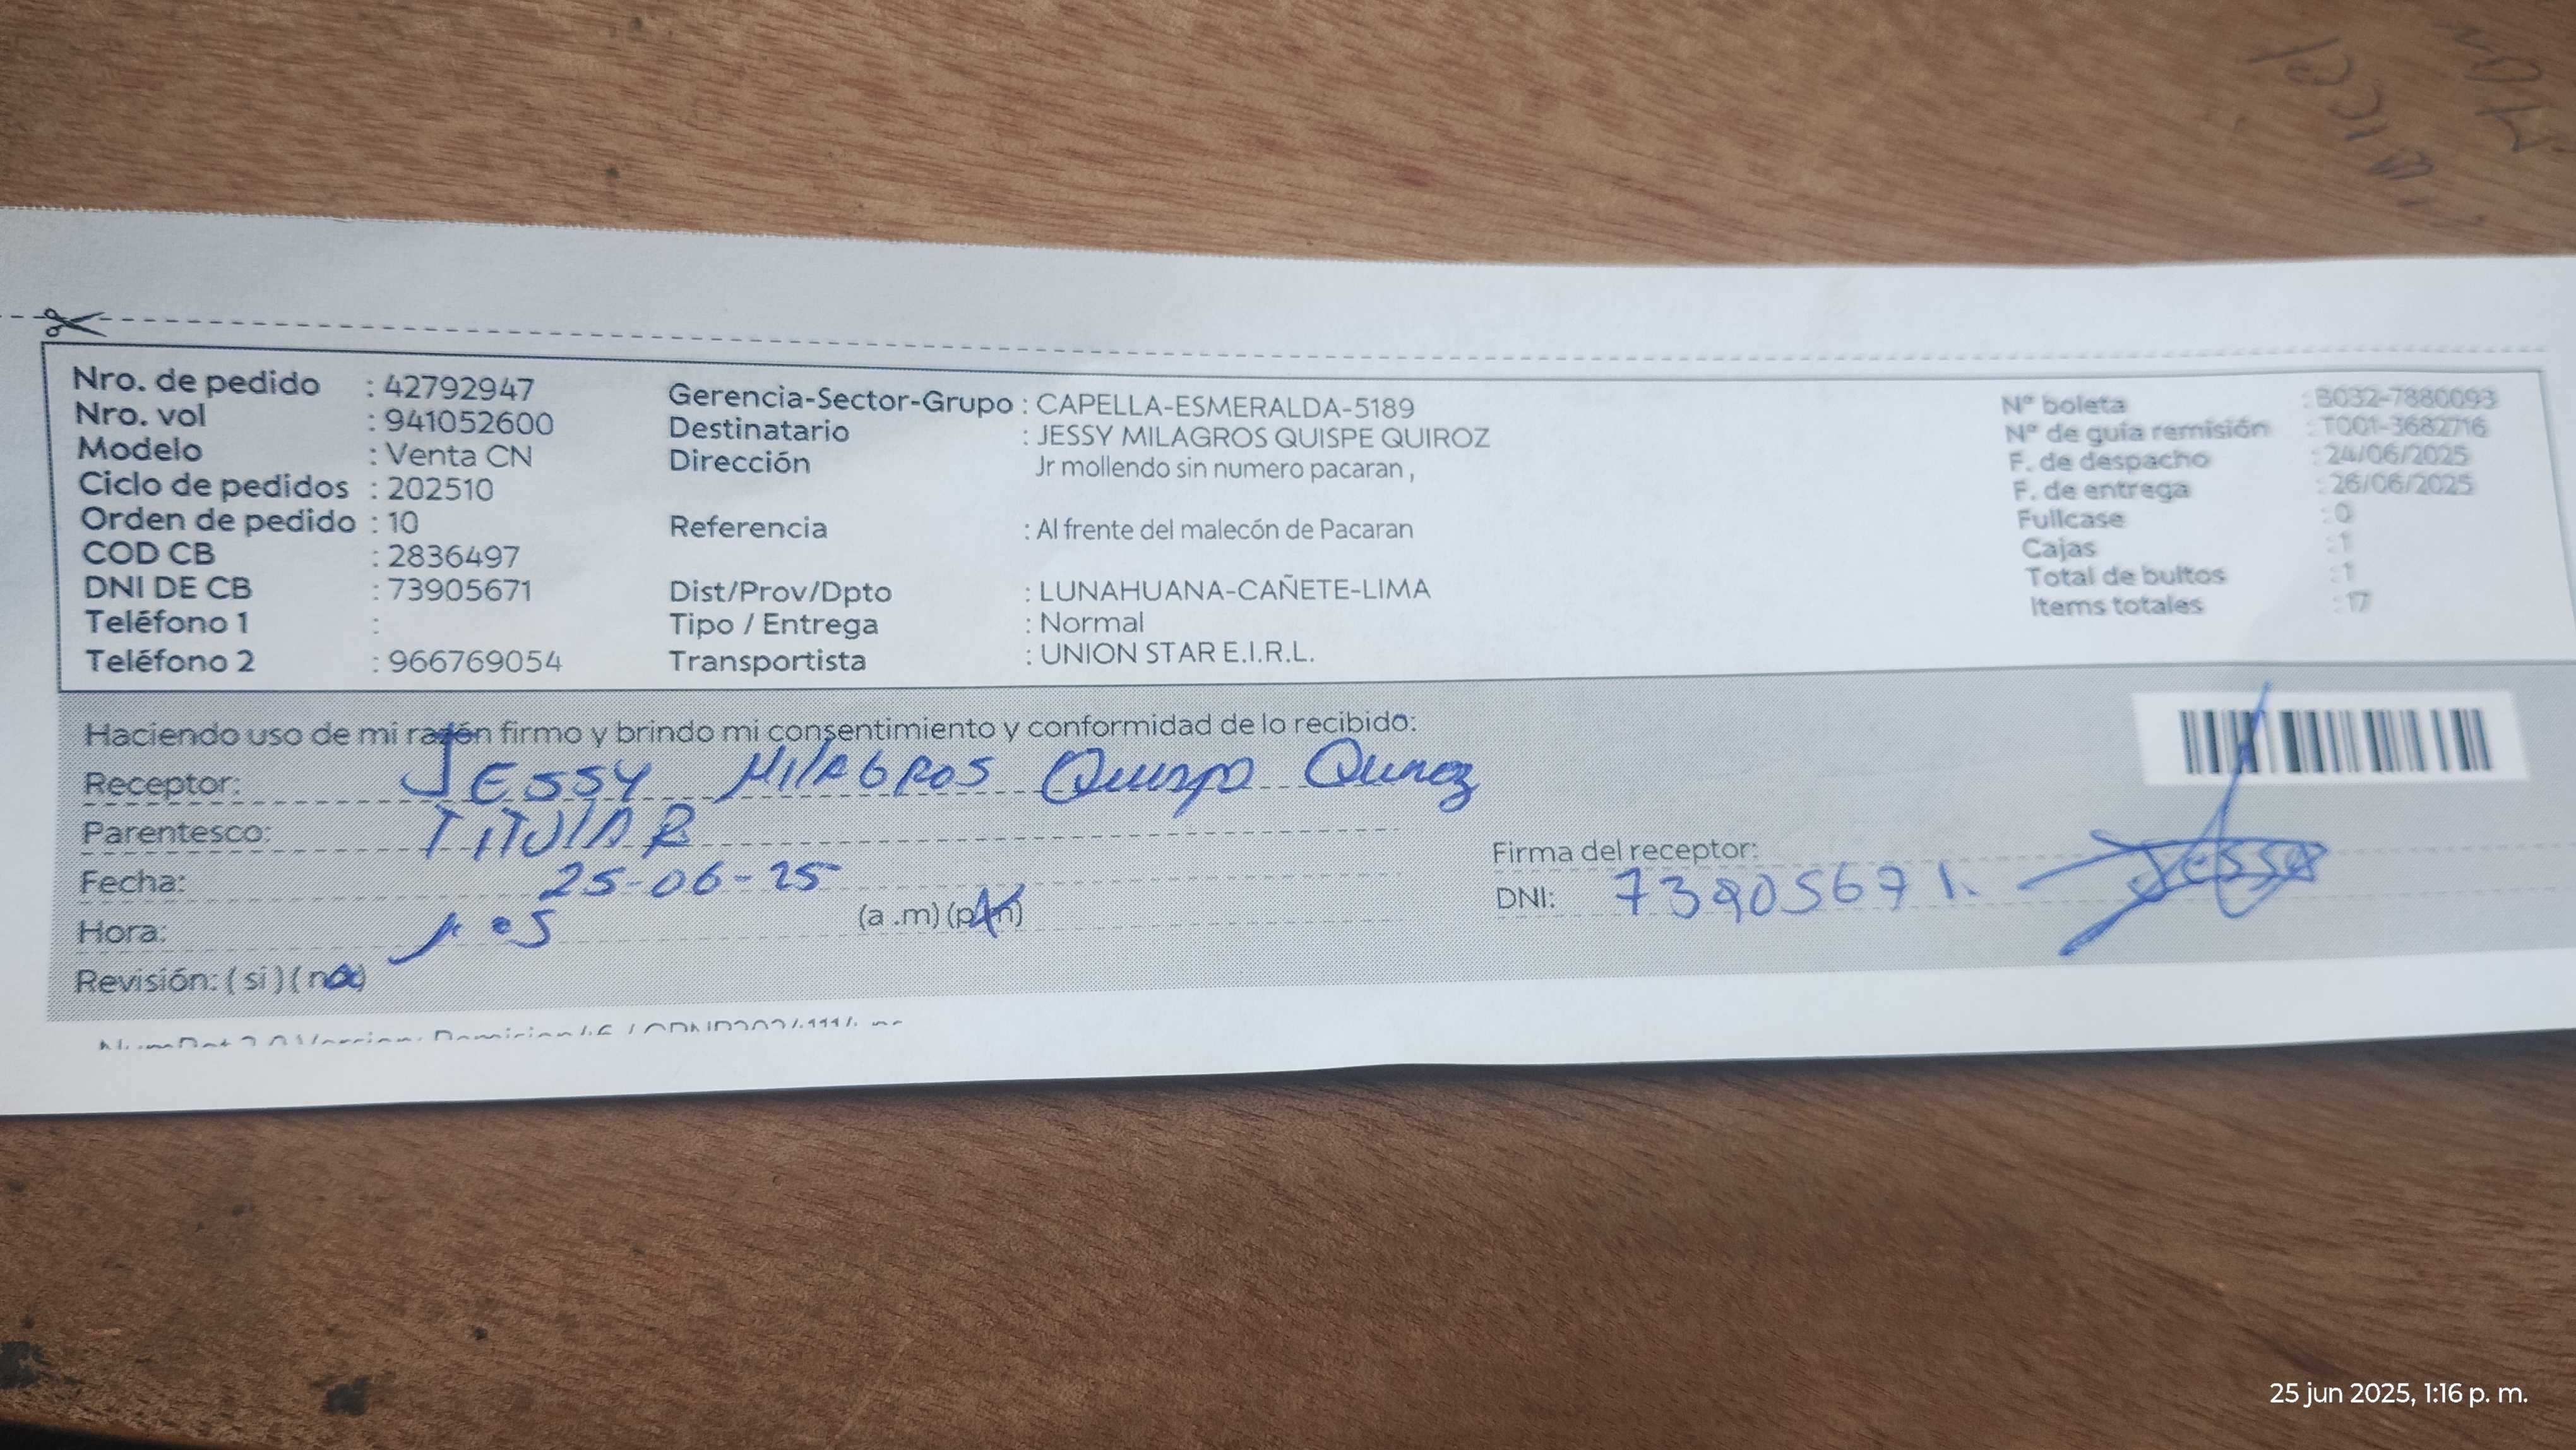 Nro. de pedido : 42792947
Nro. vol : 941052600
Modelo : Venta CN
Ciclo de pedidos : 202510
Orden de pedido : 10
COD CB : 2836497
DNI DE CB : 73905671
Teléfono 1 :
Teléfono 2 : 966769054
Gerencia-Sector-Grupo : CAPELLA-ESMERALDA-5189
Destinatario : JESSY MILAGROS QUISPE QUIROZ
Dirección Jr mollendo sin numero pacaran ,
Referencia : Al frente del malecón de Pacaran
Dist/Prov/Dpto : LUNAHUANA-CAÑETE-LIMA
Tipo / Entrega : Normal
Transportista : UNION STAR E.I.R.L.
Nº boleta : B032-7880093
Nº de guía remisión : T001-3682716
F. de despacho : 24/06/2025
F. de entrega : 26/06/2025
Fullcase : 0
Cajas : 1
Total de bultos : 1
Items totales : 17
Haciendo uso de mi razón firmo y brindo mi consentimiento y conformidad de lo recibido:
Receptor: JESSY MILAGROS Quispe Quiroz
Parentesco: TITULAR
Fecha: 25-06-25
Hora: 1:05 (a .m) (p.m)
Revisión: ( si ) ( no )
Firma del receptor:
DNI: 73905671.
25 jun 2025, 1:16 p. m.